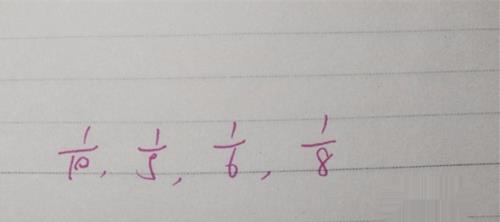 1/10, 1/5, 1/6, 1/8